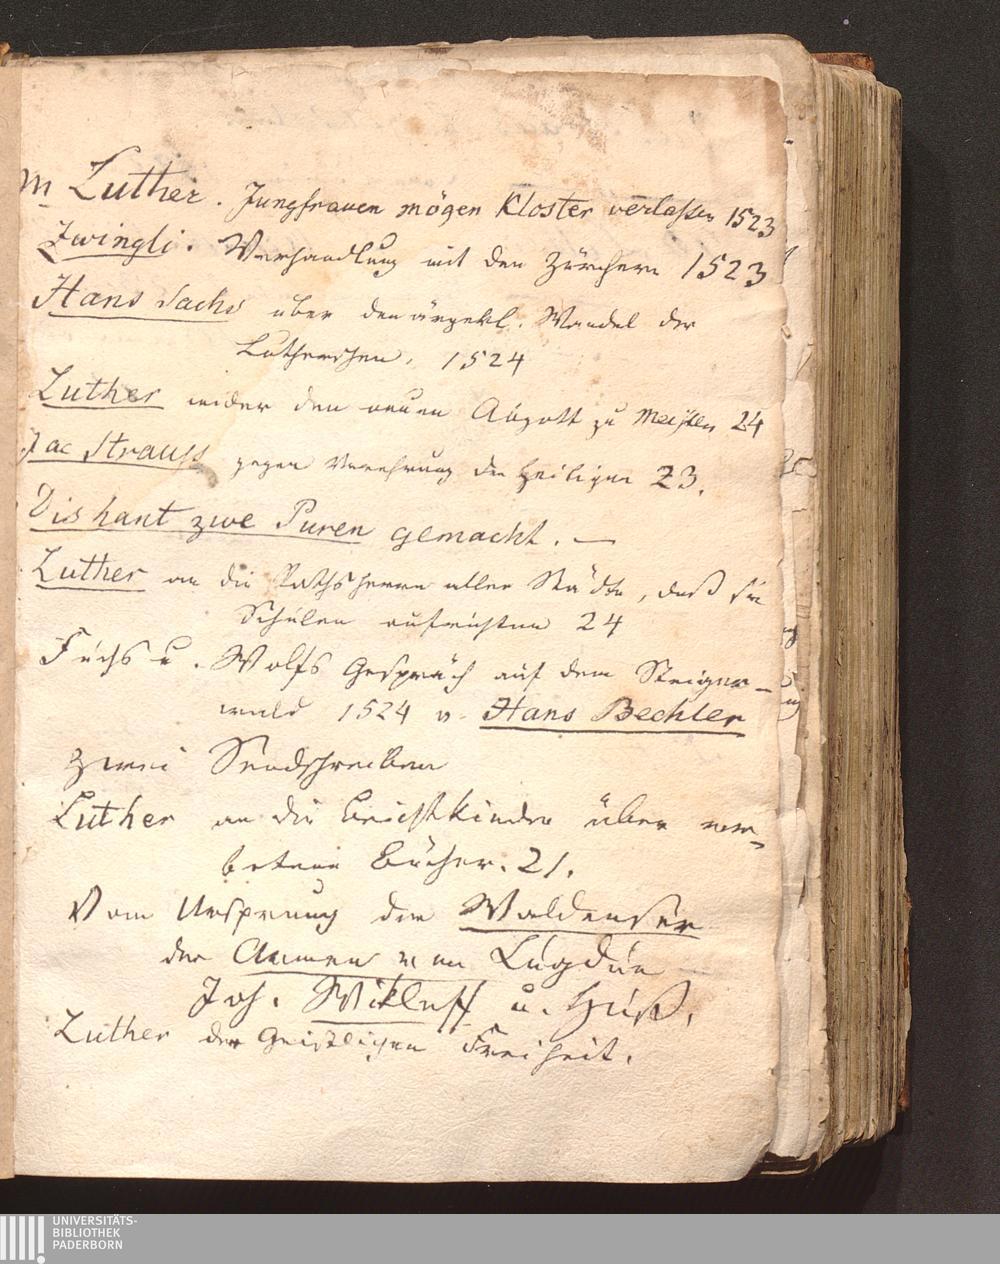 M Luther. Jungfrauen mögen Kloster verlassen 1523
Zwingli. Verhandlung mit den Zürchern 1523
Hans Sachs über den ärgerl. Wandel der
Lutherschen. 1524
Luther wider den neuen Abgott zu Meissen 24
Jac Strauss gegen Verehrung der Heiligen 23.
Dis hant zwe Puren gemacht. —
Luther an die Rathsherrn aller Städte, daß sie
Schulen aufrichten 24
Fuchs u. Wolfs Gespräch auf dem Steiger-
wald 1524 v. Hans Bechler
Zwei Sendschreiben
Luther an die Beichtkinder über ver-
botene Bücher. 21.
Vom Ursprung der Waldenser
der Armen von Lugdun
Joh. Wikleff u. Huß.
Luther der Geistligen Freiheit.
UNIVERSITÄTS-
BIBLIOTHEK
PADERBORN